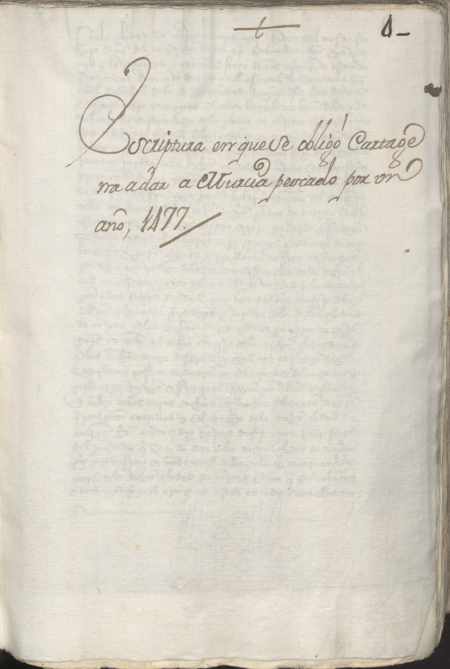 Escriptura en que se obligò Cartage
na a dar a Murcia pescado por un
año, 1477.